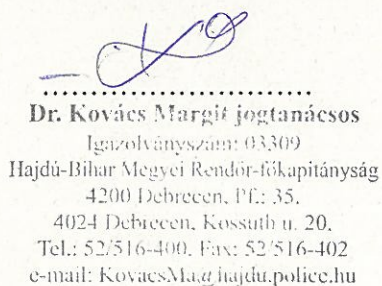 Dr. Kovács Margit jogtanácsos
Igazolványszám: 03309
Hajdú-Bihar Megyei Rendőr-főkapitányság
4200 Debrecen, Pf.: 35.
4024 Debrecen, Kossuth u. 20.
Tel.: 52/516-400, Fax: 52/516-402
e-mail: KovacsMa@hajdu.police.hu